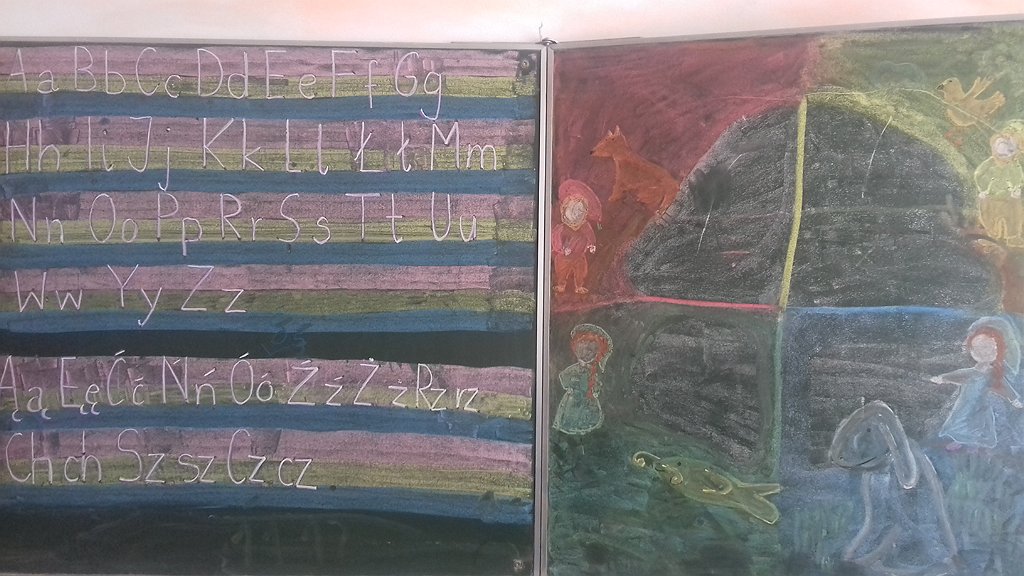 Aa Bb Cc Dd Ee Ff Gg
Hh Ii Jj Kk Ll Łł Mm
Nn Oo Pp Rr Ss Tt Uu
Ww Yy Zz
Ąą Ęę Ćć Ńń Óó Źź Żż Rz rz
Ch ch Sz sz Cz cz